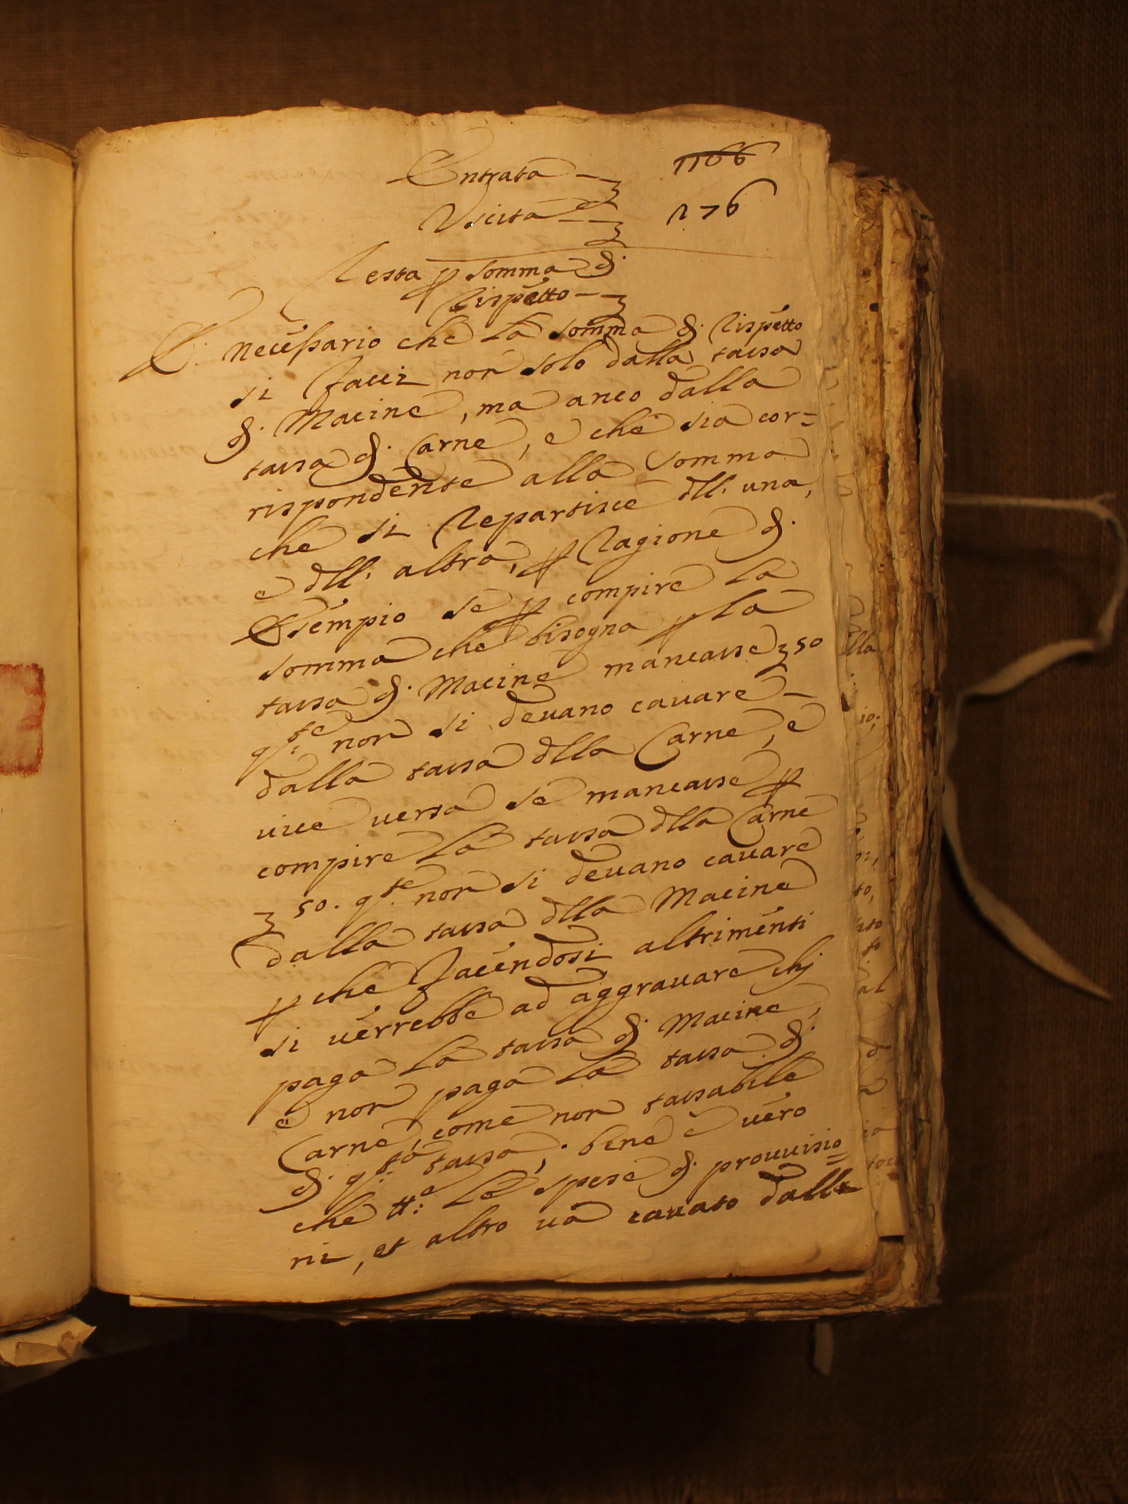 Entrata — 1166
Uscita — 276
Resta p somma di
Rispetto —
È necessario che la somma di rispetto
si facci non solo dalla tassa
di Macine, ma anco dalla
tassa di Carne, e che sia cor=
rispondente alla somma
che si repartisce dll: una,
e dll: altra, p ragione di
Essempio se p compire la
somma che bisogna p la
tassa di Macine mancasse 50
q:te non si devano cavare
dalla tassa dlla Carne, e
vice versa se mancasse p
compire la tassa dlla Carne
50. q:te non si devano cavare
dalla tassa dlla Macine
p che facendosi altrimenti
si verrebbe ad aggravare chi
paga la tassa di Macine,
e non paga la tassa di
Carne, come non tassabile
di q:ta tassa, bene è vero
che tt:e le spese di provvisio=
ni, et altro va cavato dalla
lla
io;
to,
al